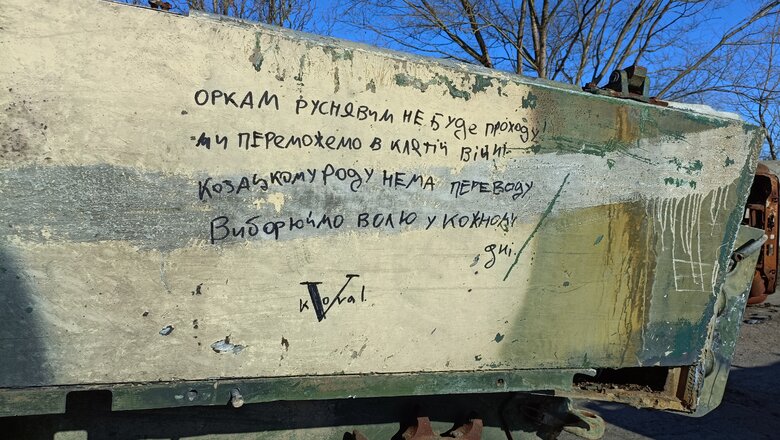 ОРКАМ РУСНЯВИМ НЕ БУДЕ ПРОХОДУ!
МИ ПЕРЕМОЖЕМО В КЛЯТІЙ ВІЙНІ.
КОЗАЦЬКОМУ РОДУ НЕМА ПЕРЕВОДУ
ВИБОРЮЙМО ВОЛЮ У КОЖНОМУ
ДНІ.
KoVal.